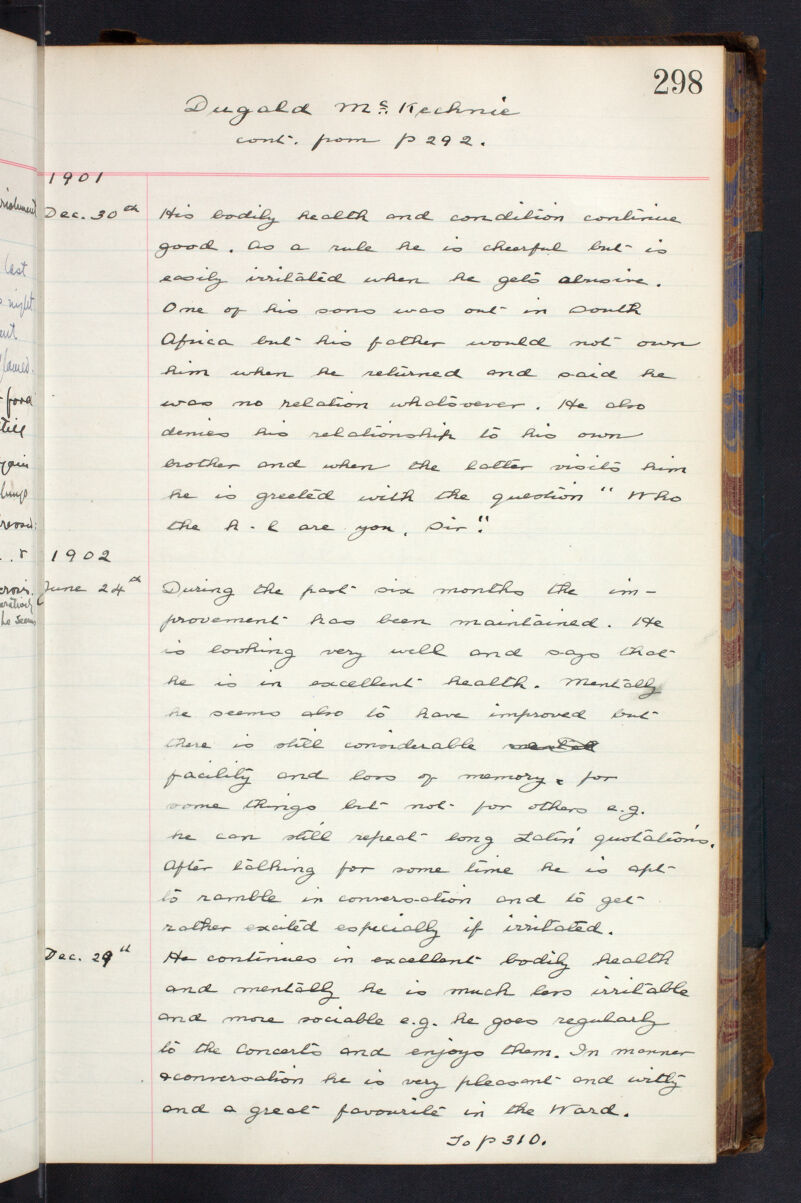 298
Dugald Mc. Kechnie
cont. from p 292.
1901
Dec. 30th His bodily health and condition continue
good. As a rule he is cheerful but is
easily irritated when he gets abusive.
One of his sons was out in South
Africa but his father would not own
him when he returned and said he
was no relation whatsoever. He also
denies his relationship to his own
brother and when the latter visits him
he is greeted with the question "Who
the h-l are you, Sir".
1902
June 24th During the past six months the im-
provement has been maintained. He
is looking very well and says that
he is in excellent health. Mentally
he seems also to have improved but
there is still considerable
facility and loss of memory for
some things but not for others e.g.
he can still repeat long Latin quotations.
After talking for some time he is apt
to ramble in conversation and to get
rather excited especially if irritated.
Dec. 29th He continues in excellent bodily health
and mentally he is much less irritable
and more sociable e.g. he goes regularly
to the Concerts and enjoys them. In manner
& conversation he is very pleasant and witty
and a great favourite in the Ward.
To p 310.
last
night